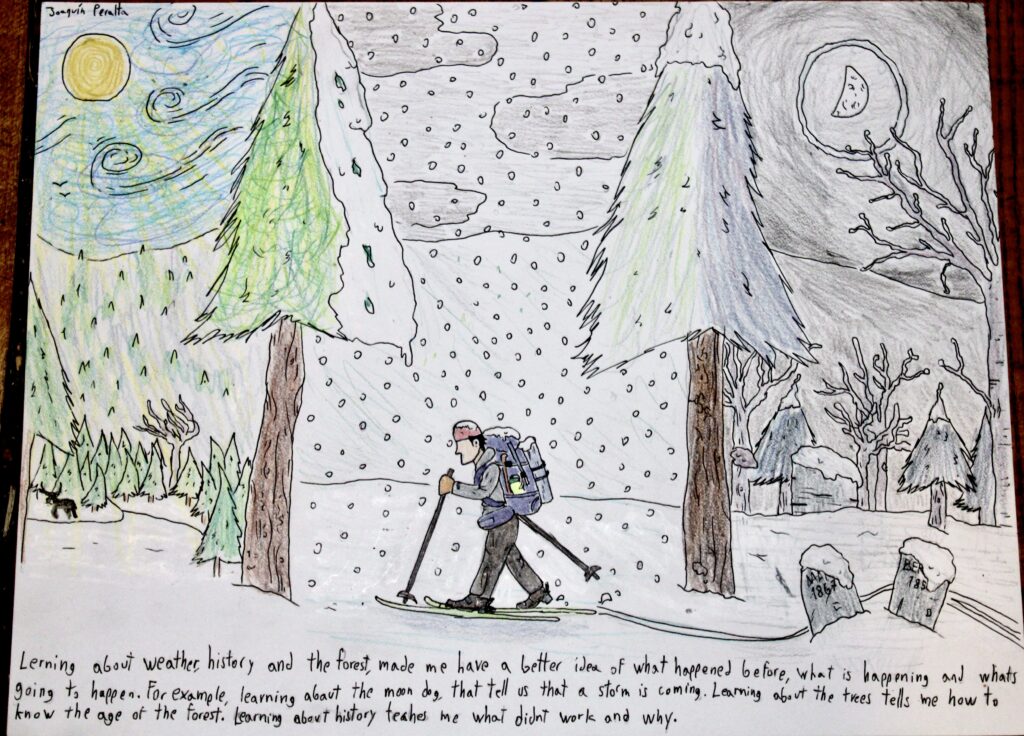 Joaquín Peralta
MAT
1867
BEN
185
Lerning about weather, history and the forest, made me have a better idea of what happened before, what is happening and whats
going to happen. For example, learning about the moon dog, that tell us that a storm is coming. Learning about the trees tells me how to
know the age of the forest. Learning about history teaches me what didnt work and why.